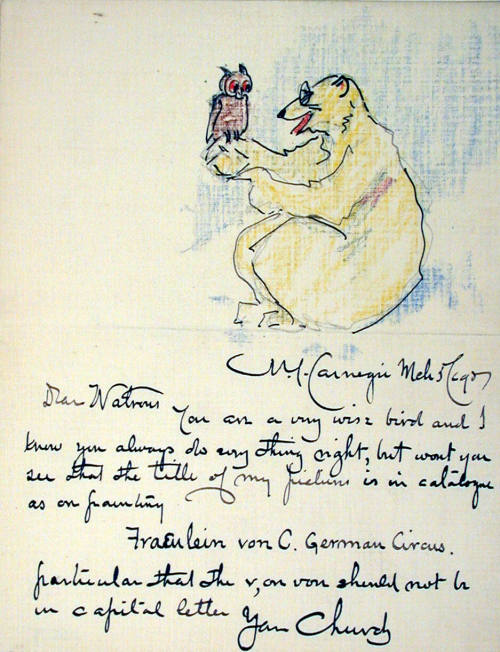 Carnegie Mch 5
Dear Watrous
You are a very wise bird and I
know you always do every thing right, but wont you
see that the title of my picture is in catalogue
as on painting
Fraeulein von C. German Circus.
particular that the v, on von should not be
in capital letter Church